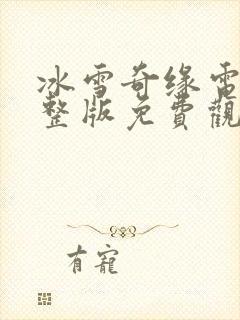 冰雪奇缘電
整版免費觀
有寵